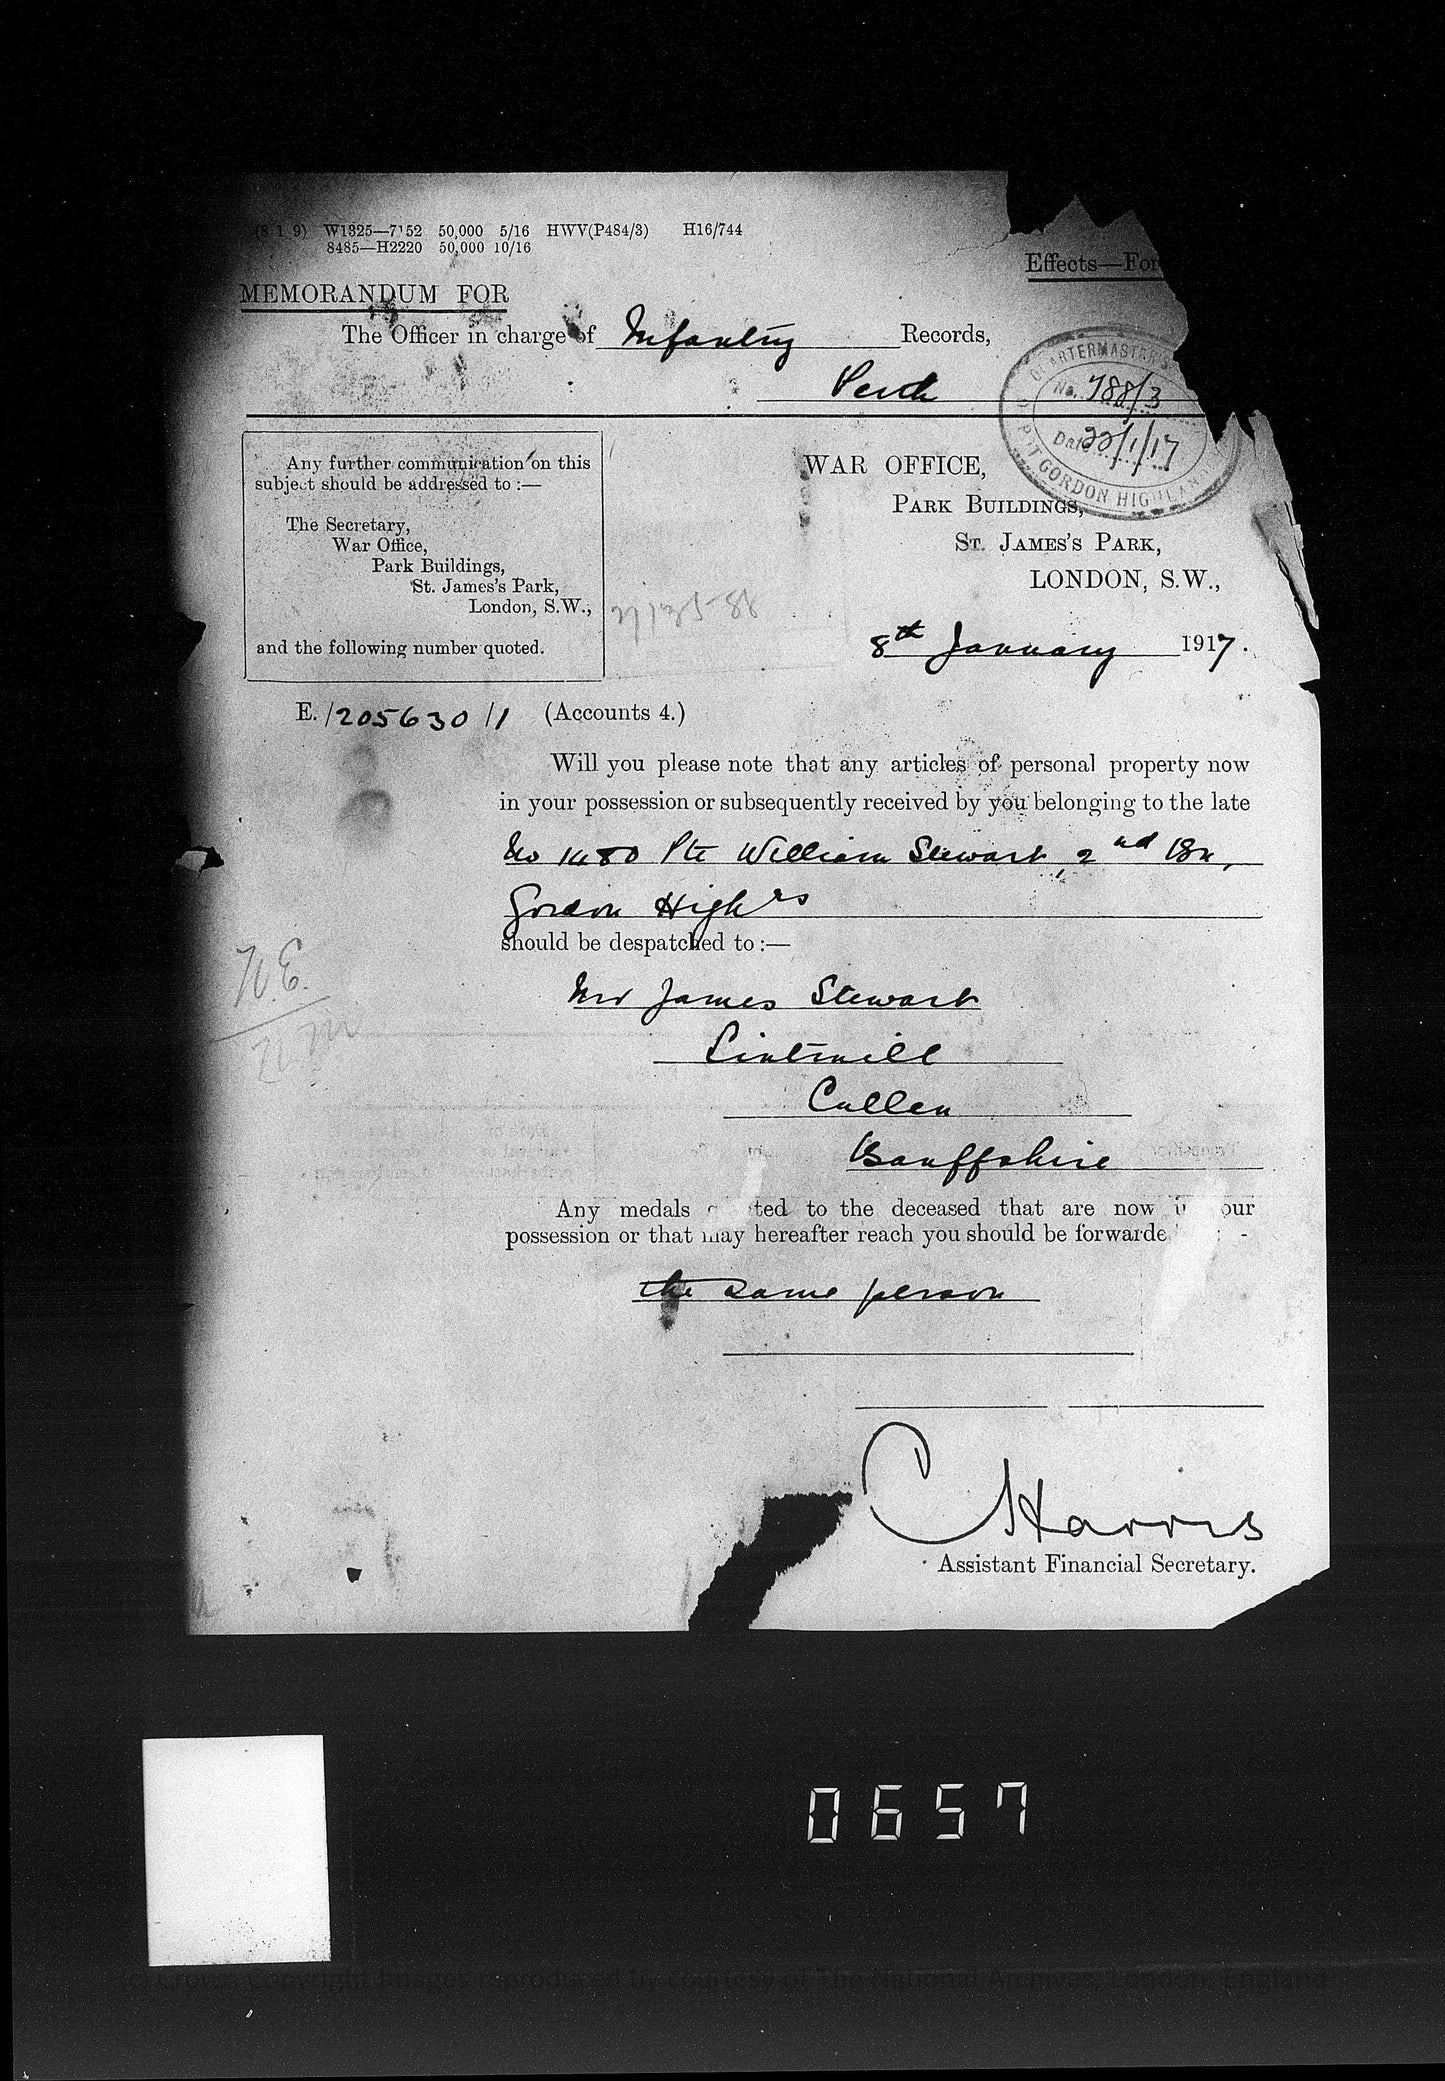 (8 1 9) W1325—7152 50,000 5/16 HWV(P484/3) H16/744
8485—H2220 50,000 10/16
Effects—For
MEMORANDUM FOR
The Officer in charge of Infantry Records,
Perth
QUARTERMASTER
No. 788/3
Date 22/1/17
GORDON HIGHLAN
Any further communication on this
subject should be addressed to :—
The Secretary,
War Office,
Park Buildings,
St. James's Park,
London, S.W.,
and the following number quoted.
WAR OFFICE,
PARK BUILDINGS,
ST. JAMES'S PARK,
LONDON, S.W.,
8th January 1917.
E. /205630/1 (Accounts 4.)
Will you please note that any articles of personal property now
in your possession or subsequently received by you belonging to the late
No 1480 Pte William Stewart, 2nd Bn,
Gordon Highrs
should be despatched to :—
N.E.
Mr James Stewart
Lintmill
Cullen
Banffshire
Any medals ted to the deceased that are now our
possession or that may hereafter reach you should be forwarde
the same person
C Harris
Assistant Financial Secretary.
0657
(c) Crown Copyright Images reproduced by courtesy of The National Archives, London, England